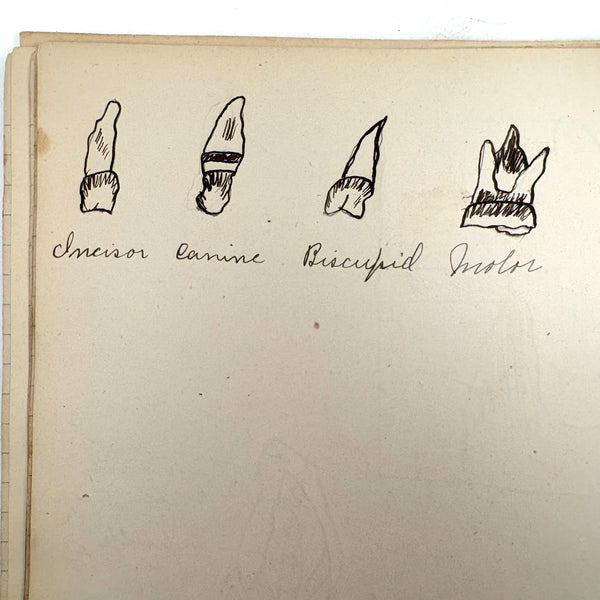 Incisor Canine Biscupid Molor